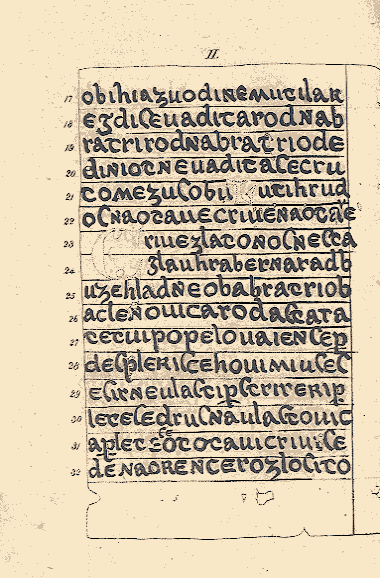 II.
17 obihiazuodinemutilak
18 egdiseuaditarodnab
19 ratrirodnabratriode
20 diniotneuaditasecru
21 tomezusobu utihrud
22 osnaotauecriuenaotaue
23 riuezlatonosnesta
24 glauhrabernaradb
25 uzehladneobabratriob
26 aclenouicarodastara
27 tetuipopelouaiensep
28 desplekisehouimiusec
29 esirneulastipstrirekip
30 letesedrusnaulastouic
31 apleteototauicriuise
32 denaokencerozlosito